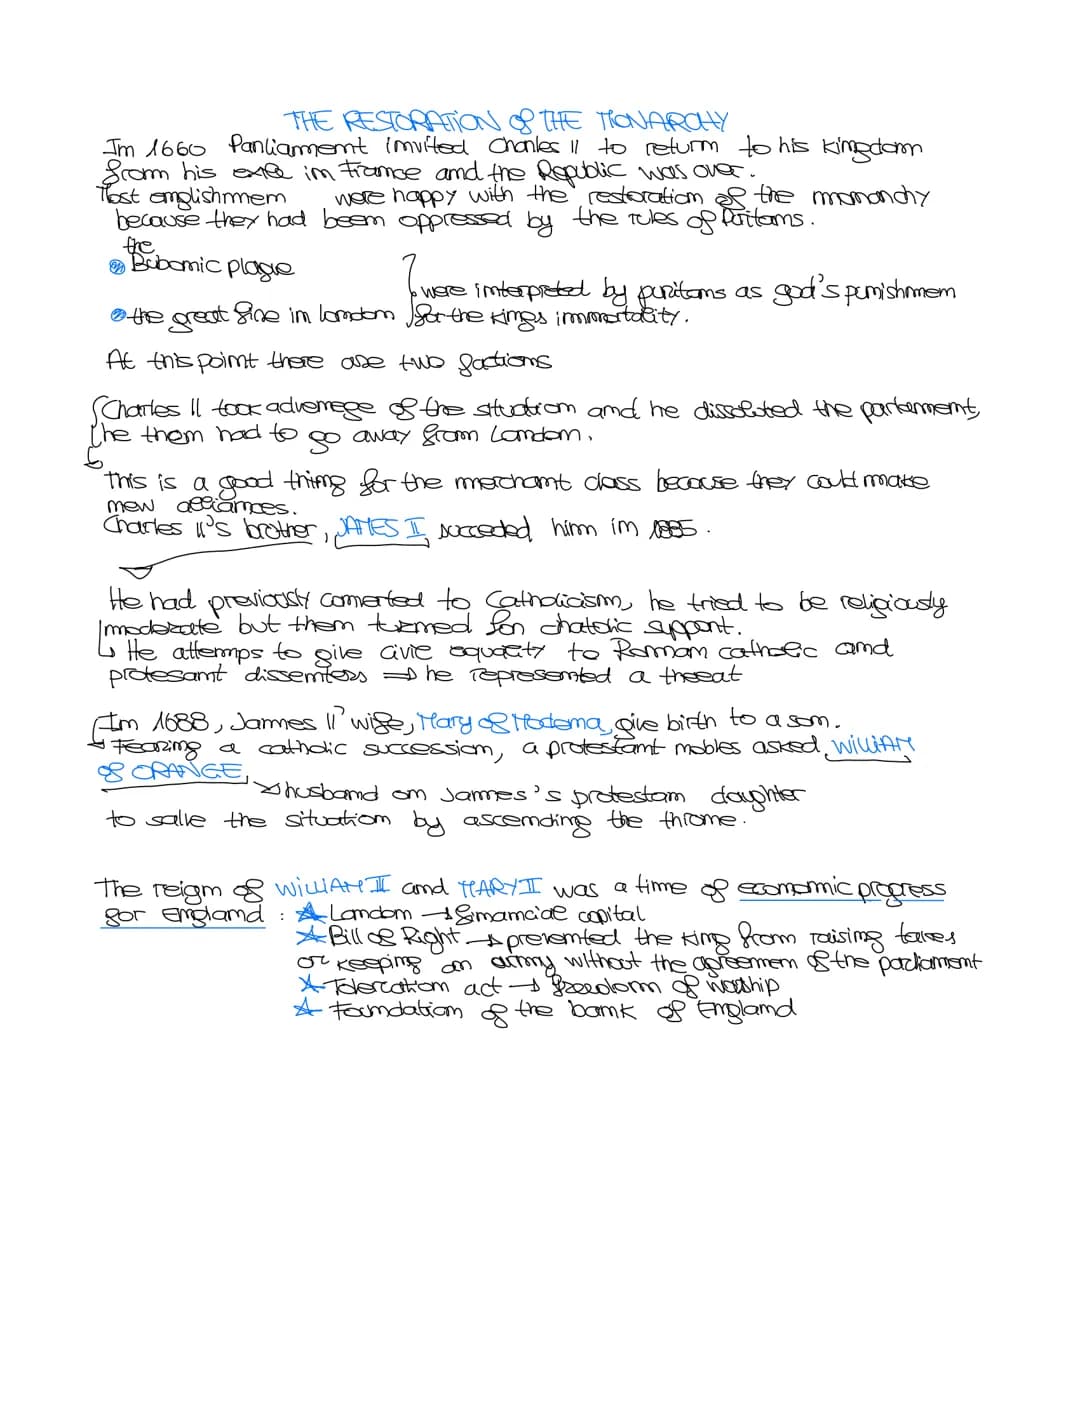 THE RESTORATION OF THE MONARCHY
In 1660 Parliament invited Charles II to return to his kingdom
from his exile in France and the Republic was over.
Most englishmen were happy with the restoration of the monarchy
because they had been oppressed by the rules of Puritans.
the
Bubonic plague
were interpreted by puritans as god's punishmen
the great fire in london for the kings immortality.
At this point there are two factions
Charles II took advantege of the situation and he dissoluted the parlament,
he then had to go away from London.
This is a good thing for the merchant class because they could make
new alliances.
Charles II's brother, JAMES II, succeded him in 1685.
He had previously converted to Catholicism, he tried to be religiously
moderate but then turned for chatolic support.
He attemps to give civic equality to Roman catholic and
protesant dissenters ⇒ he represented a threat
In 1688, James II' wife, Mary of Modena, give birth to a son.
Fearing a catholic succession, a protestant nobles asked WILLIAM
OF ORANGE,
husband on James's protestan daughter
to salve the situation by ascending the throne.
The reign of WILLIAM III and MARY II was a time of economic progress
for England : ☆ London → financial capital
☆ Bill of Right → prevented the king from raising taxes
or keeping an army without the agreemen of the parliament
☆ Toleration act → freedom of worship
☆ Foundation of the bank of England